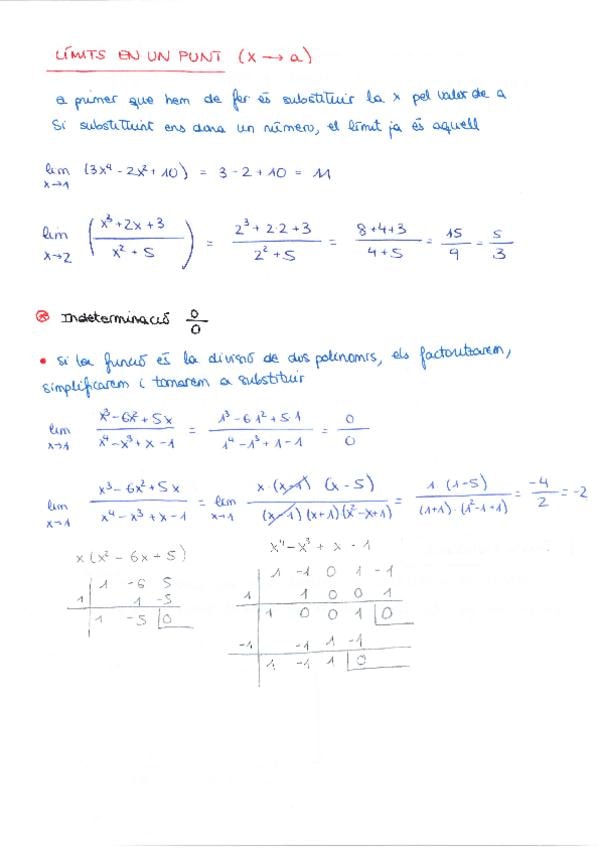 LÍMITS EN UN PUNT (x → a)
a primer que hem de fer és substituir la x pel valor de a
Si substituint ens dona un número, el límit ja és aquell
lim x→1 (3x⁴ - 2x² + 10) = 3 - 2 + 10 = 11
lim x→2 ((x³ + 2x + 3)/(x² + 5)) = (2³ + 2·2 + 3)/(2² + 5) = (8+4+3)/(4+5) = 15/9 = 5/3
⊛ Indeterminació 0/0
• Si la funció és la divisió de dos polinomis, els factoritzarem,
simplificarem i tornarem a substituir
lim x→1 (x³ - 6x² + 5x)/(x⁴ - x³ + x - 1) = (1³ - 6·1² + 5·1)/(1⁴ - 1³ + 1 - 1) = 0/0
lim x→1 (x³ - 6x² + 5x)/(x⁴ - x³ + x - 1) = lim x→1 (x·(x-1)(x-5))/((x-1)(x+1)(x²-x+1)) = (1·(1-5))/((1+1)·(1²-1+1)) = -4/2 = -2
x(x² - 6x + 5)
1 -6 5
1 1 -5
1 -5 0
x⁴ - x³ + x - 1
1 -1 0 1 -1
1 1 0 0 1
1 0 0 1 0
-1 -1 1 -1
1 -1 1 0